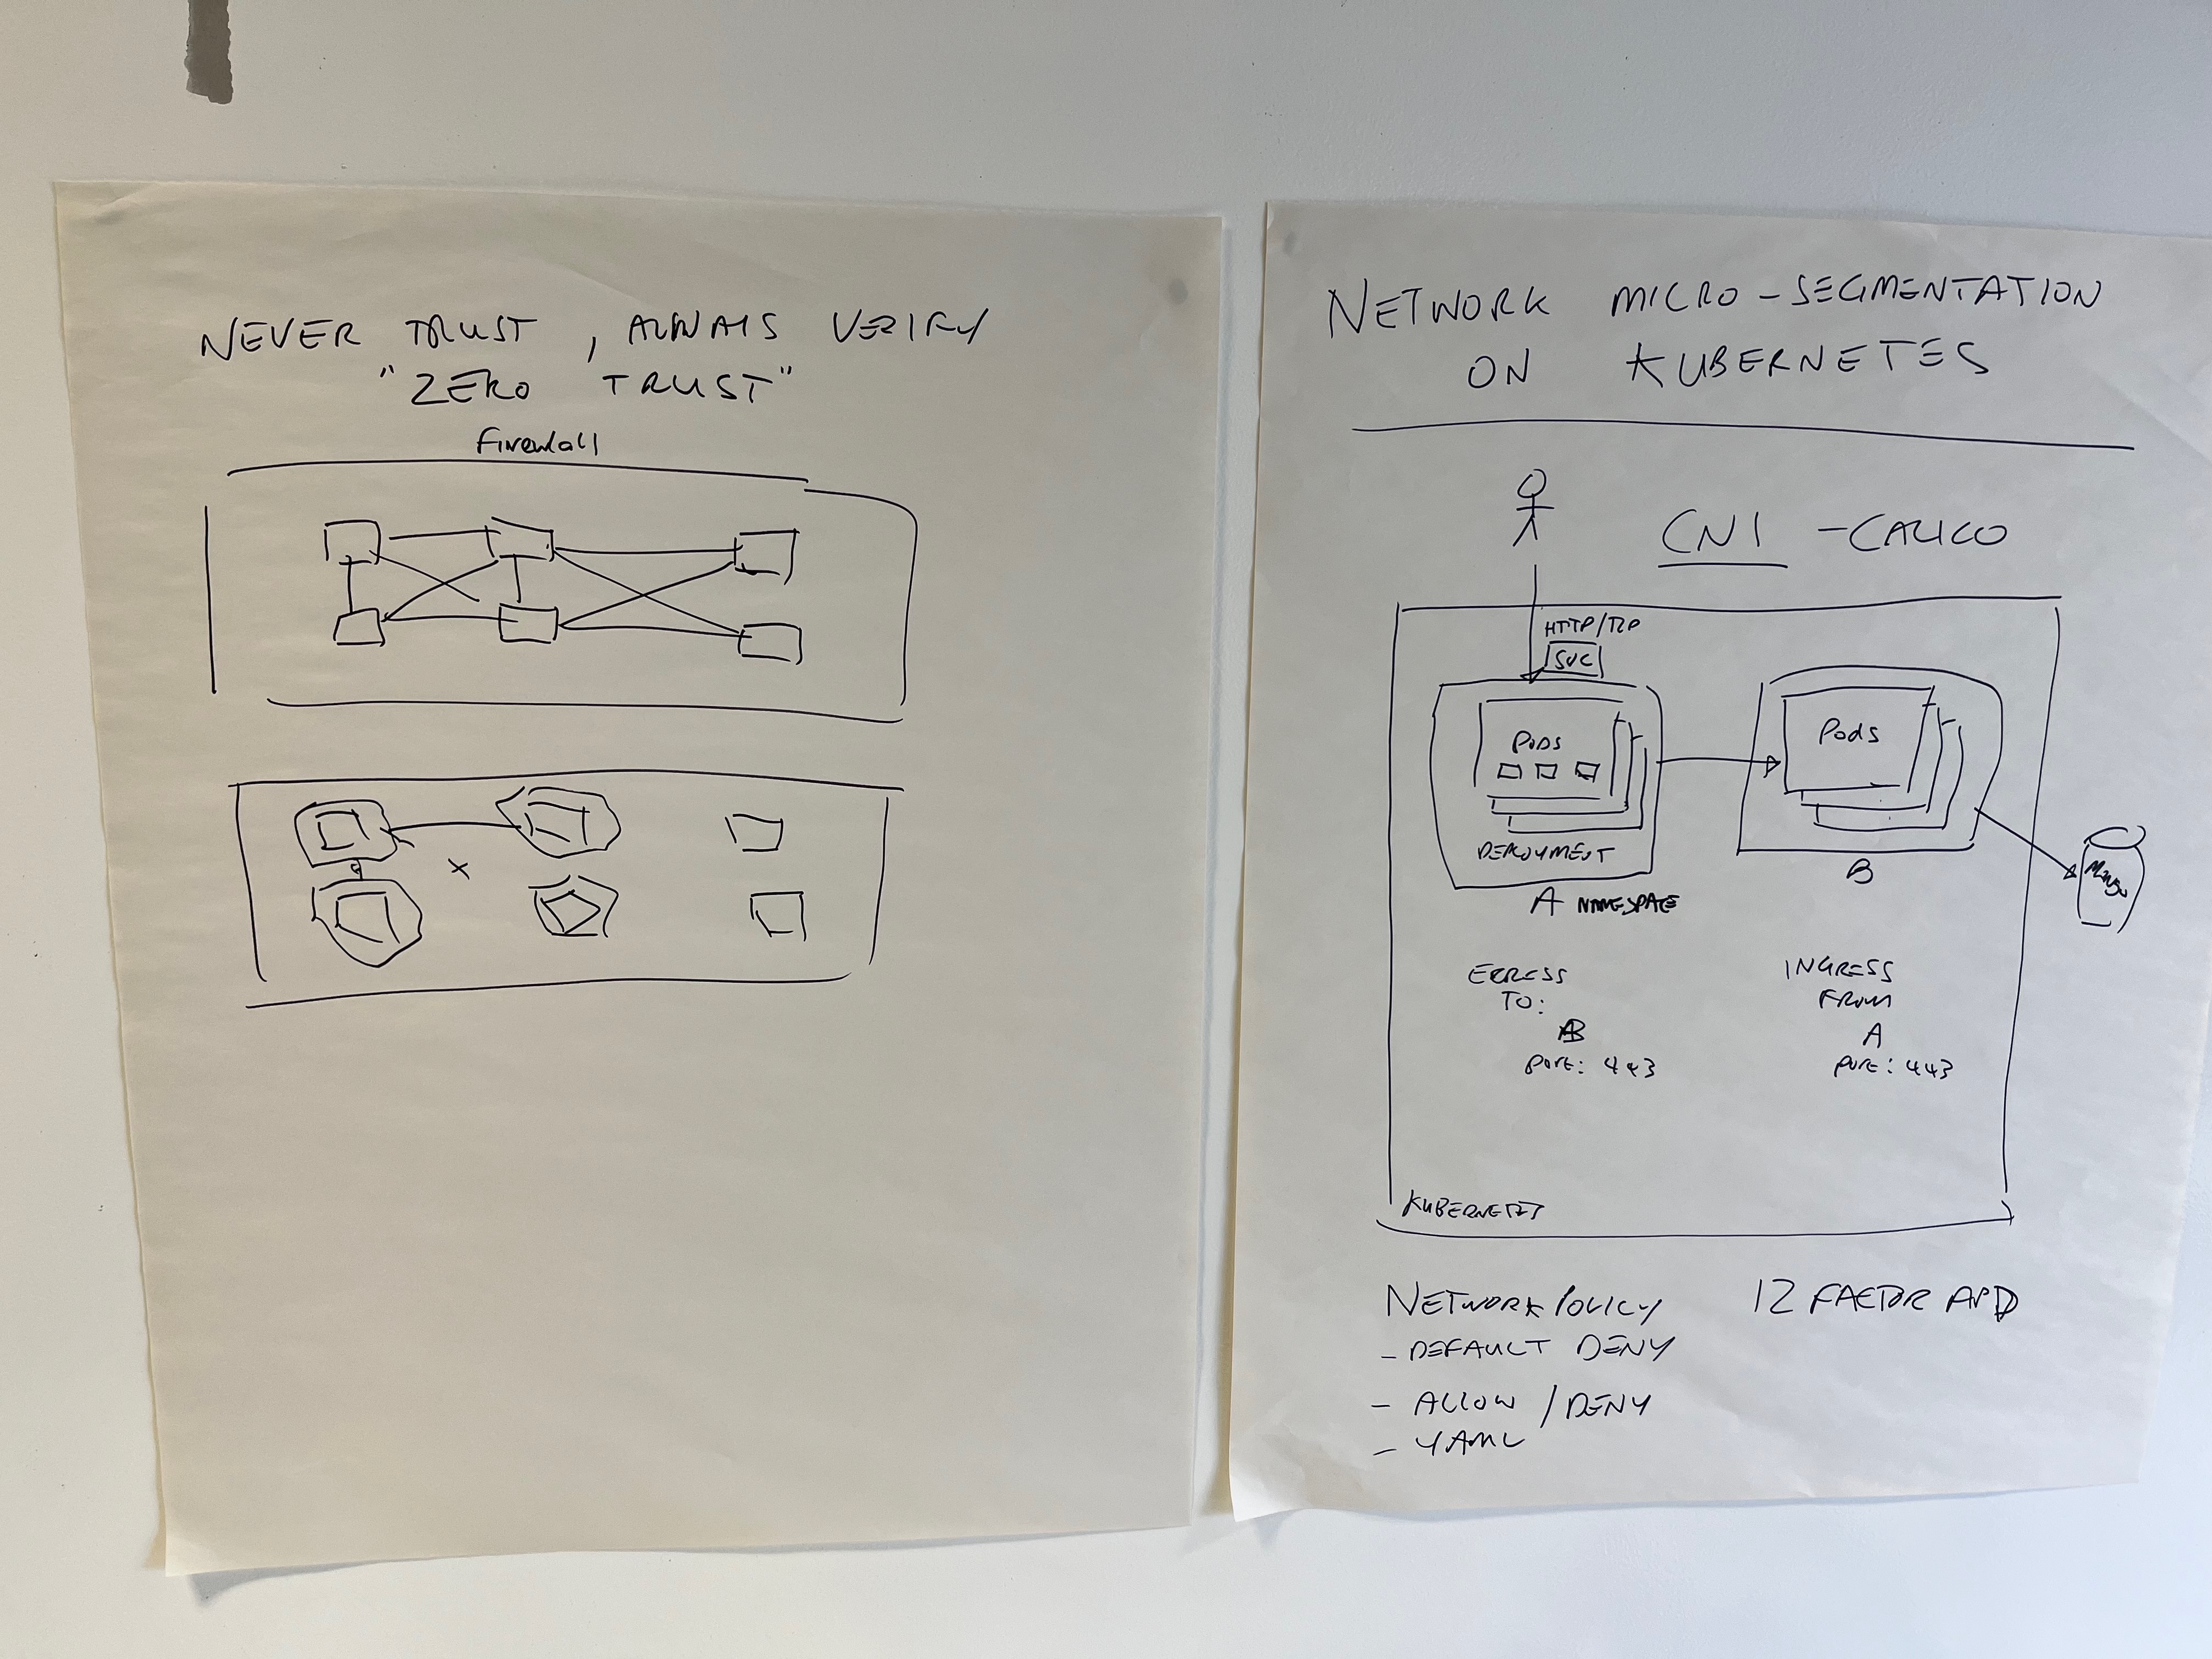 NEVER TRUST, ALWAYS VERIFY
"ZERO TRUST"
Firewall
NETWORK MICRO-SEGMENTATION
ON KUBERNETES
CNI - CALICO
HTTP/TCP
SVC
PODS
DEPLOYMENT
A NAMESPACE
Pods
B
Mongo
EGRESS
TO:
B
PORT: 443
INGRESS
FROM
A
PORT: 443
KUBERNETES
NETWORK POLICY
- DEFAULT DENY
- ALLOW / DENY
- YAML
12 FACTOR APP